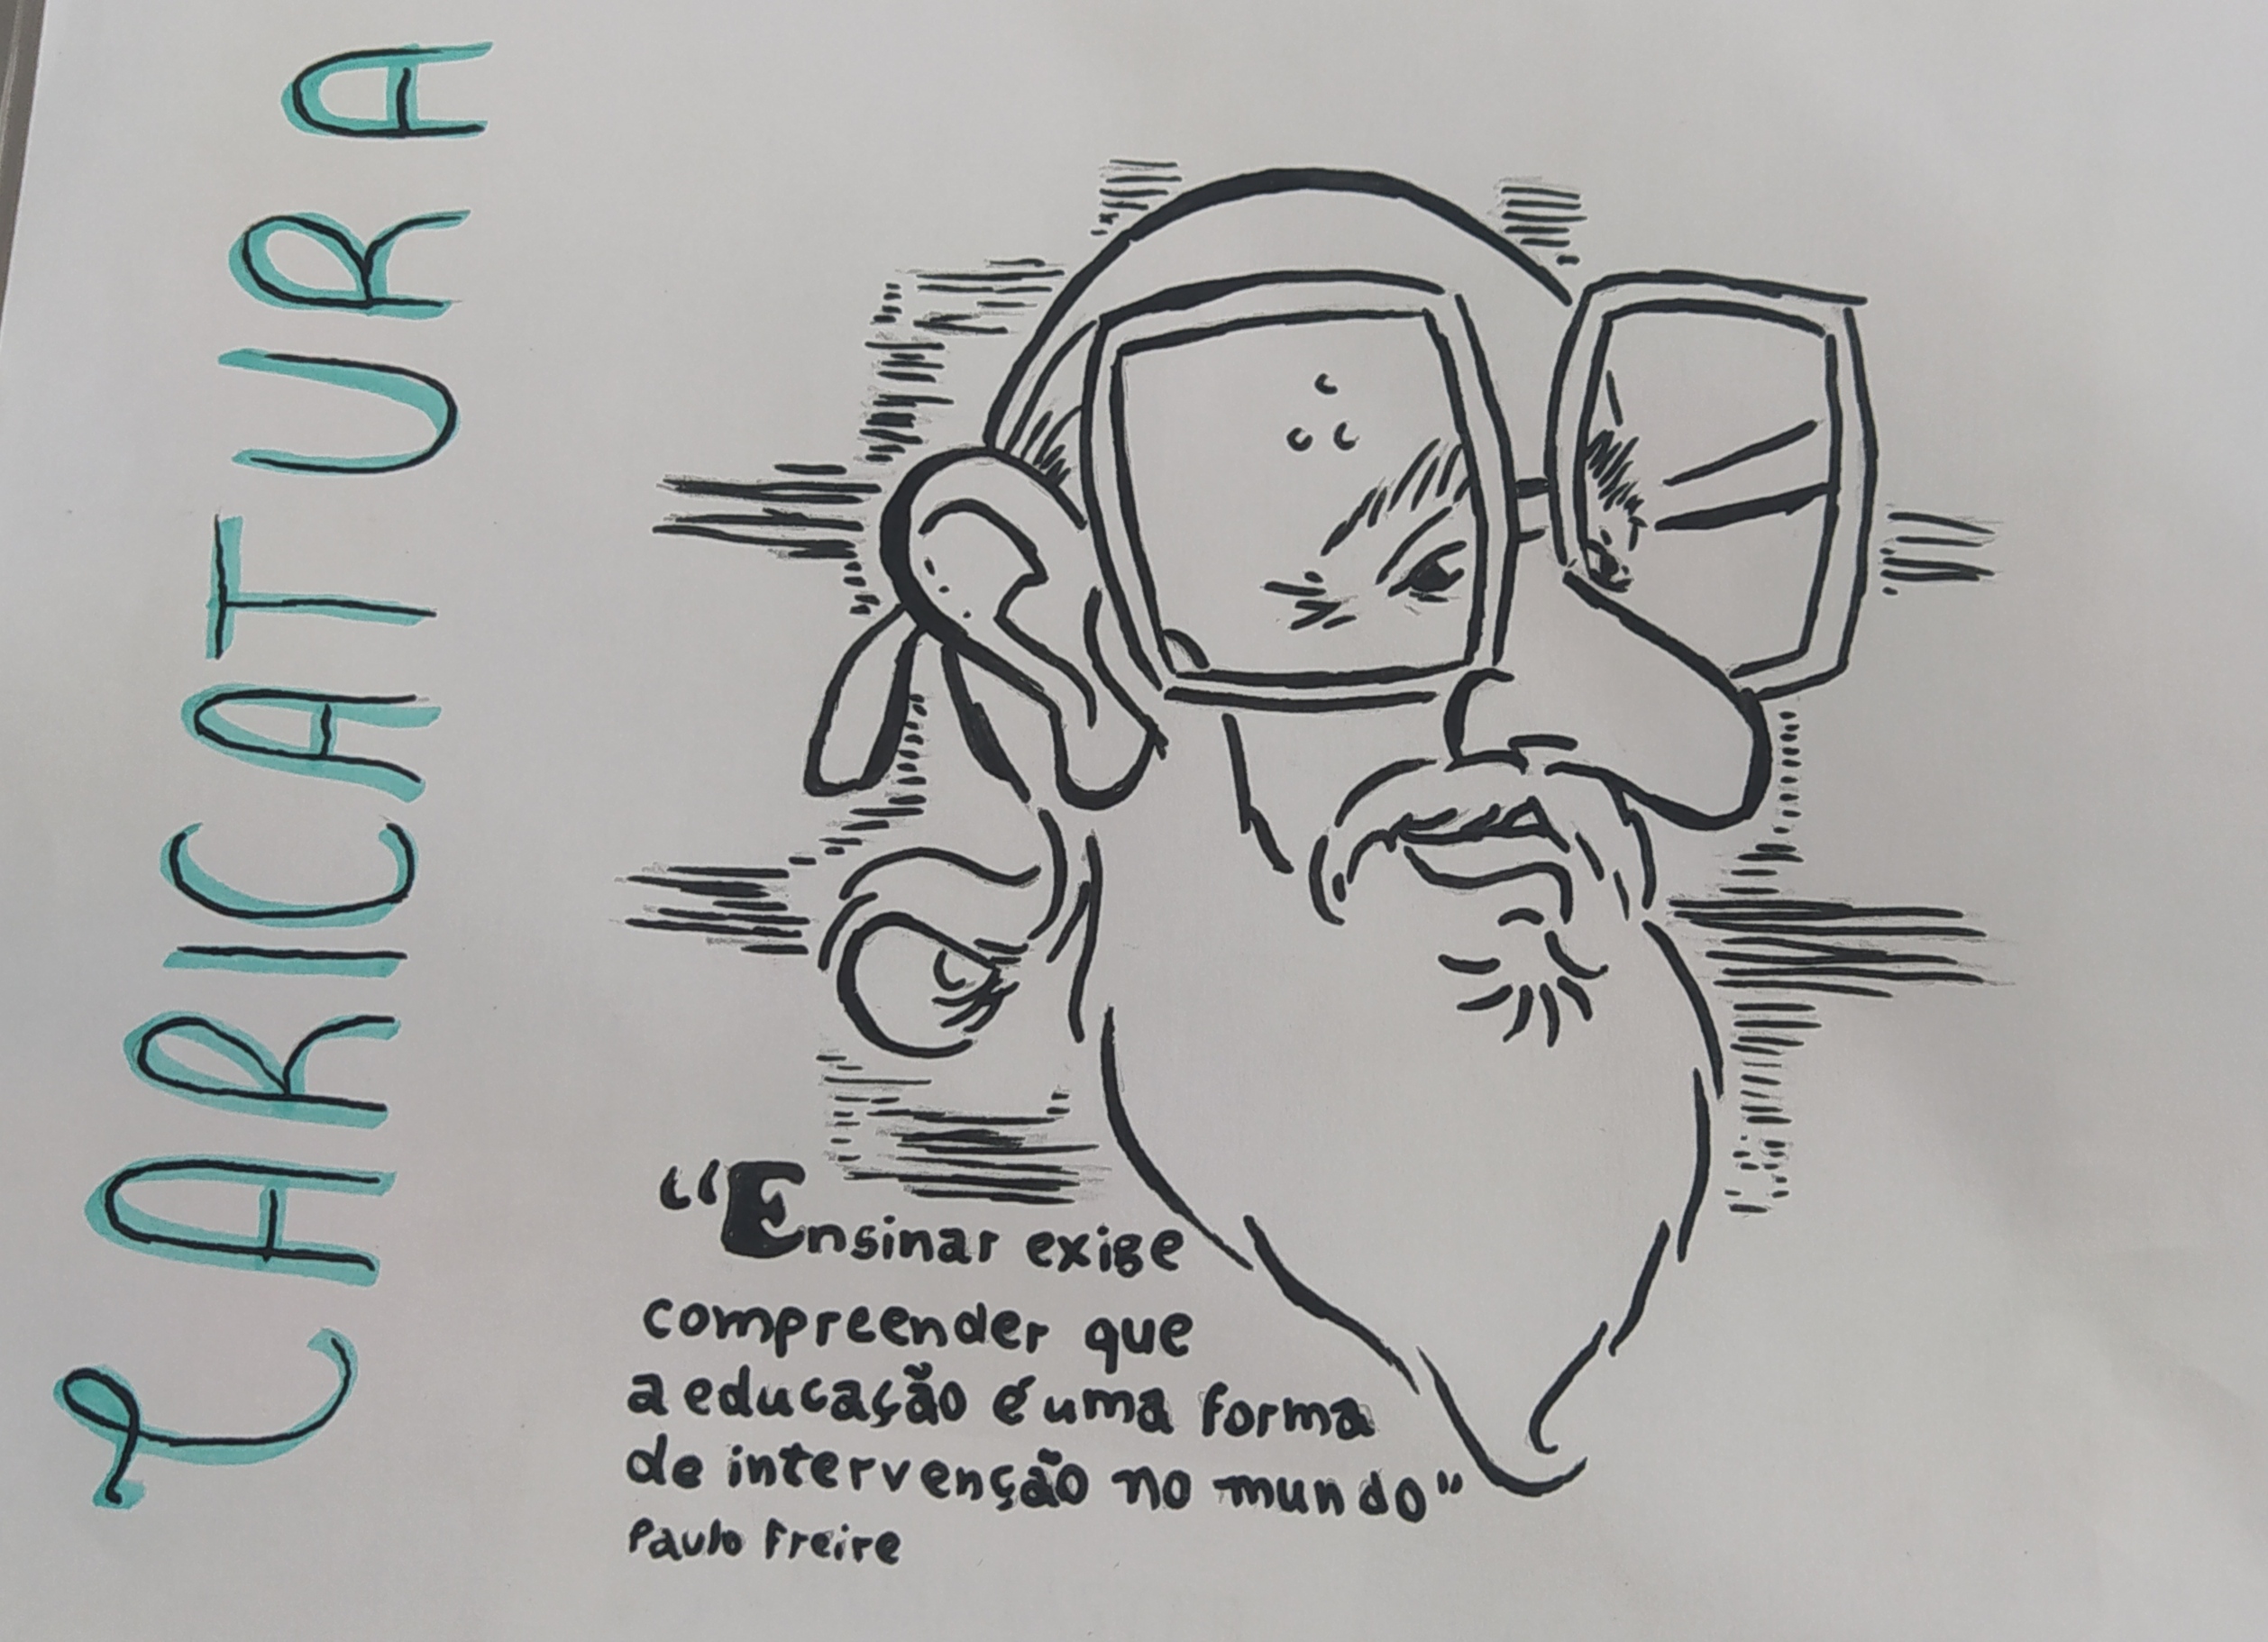 CARICATURA
“Ensinar exige
compreender que
a educação é uma forma
de intervenção no mundo”
Paulo Freire